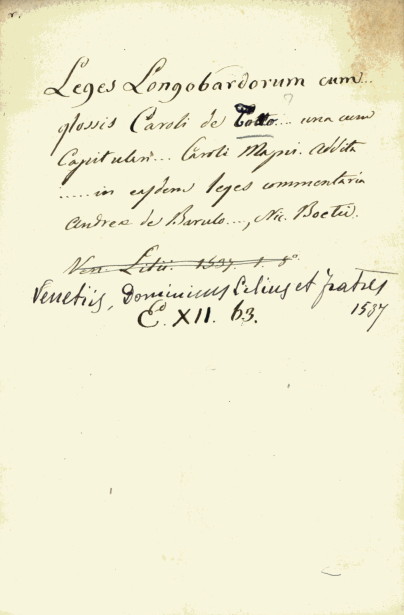 Leges Longobardorum cum...
glossis Caroli de Totto... una cum
Capitulari... Caroli Magni. Addita
......in easdem leges commentaria
Andreæ de Barulo..., Nic. Boetii.
Ven. Lilii. 1537. 1. 8°
Venetiis, Dominicus Lilius et fratres
1537
E^d XII. 63.